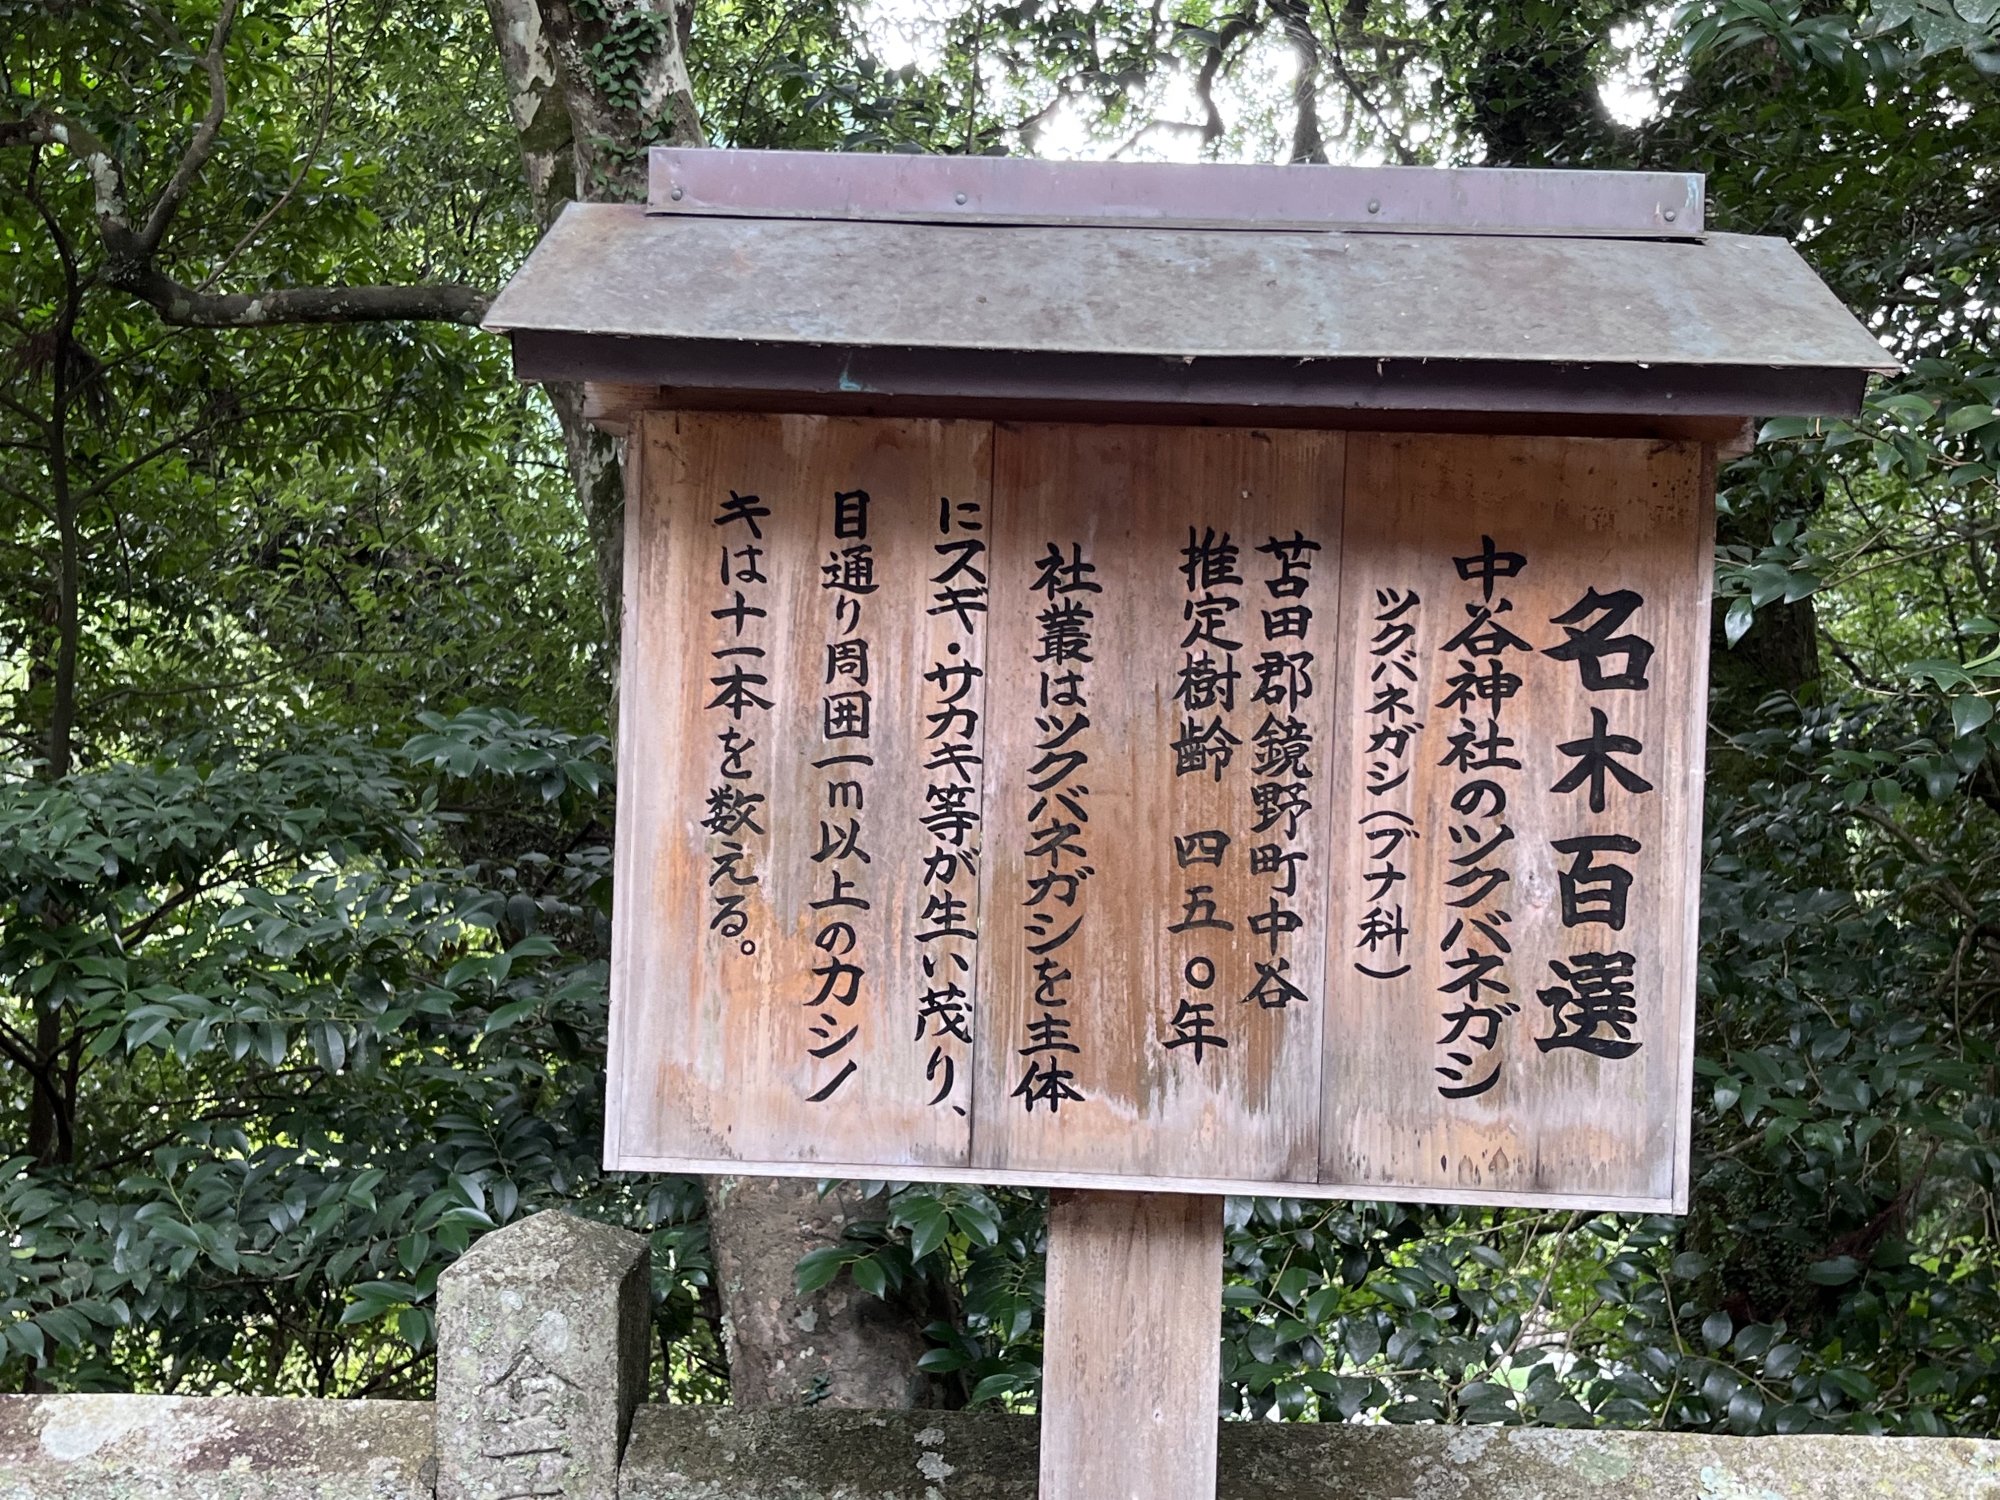 名木百選
中谷神社のツクバネガシ
ツクバネガシ(ブナ科)
苫田郡鏡野町中谷
推定樹齢 四五〇年
社叢はツクバネガシを主体
にスギ・サカキ等が生い茂り、
目通り周囲一m以上のカシノ
キは十一本を数える。